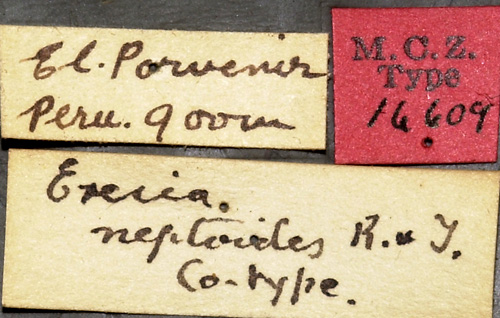 El. Porvenir
Peru. 900m
M.C.Z.
Type
16609
Eresia.
neptoides R. & T.
Co-type.